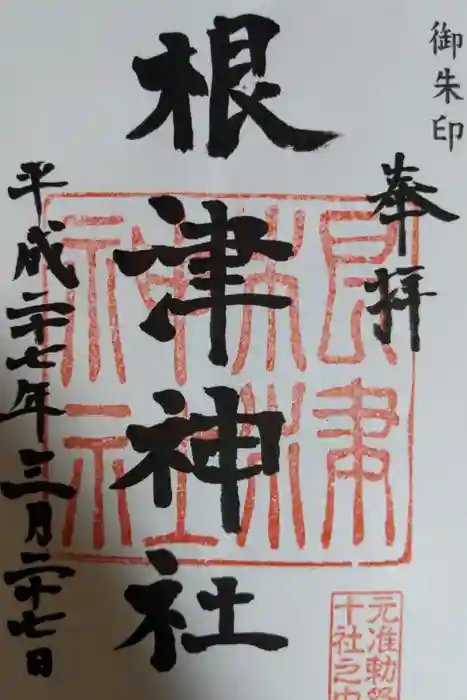 御朱印
奉拝
根津神社
平成二十七年三月二十七日
根津
神社
元准勅祭
十社之内